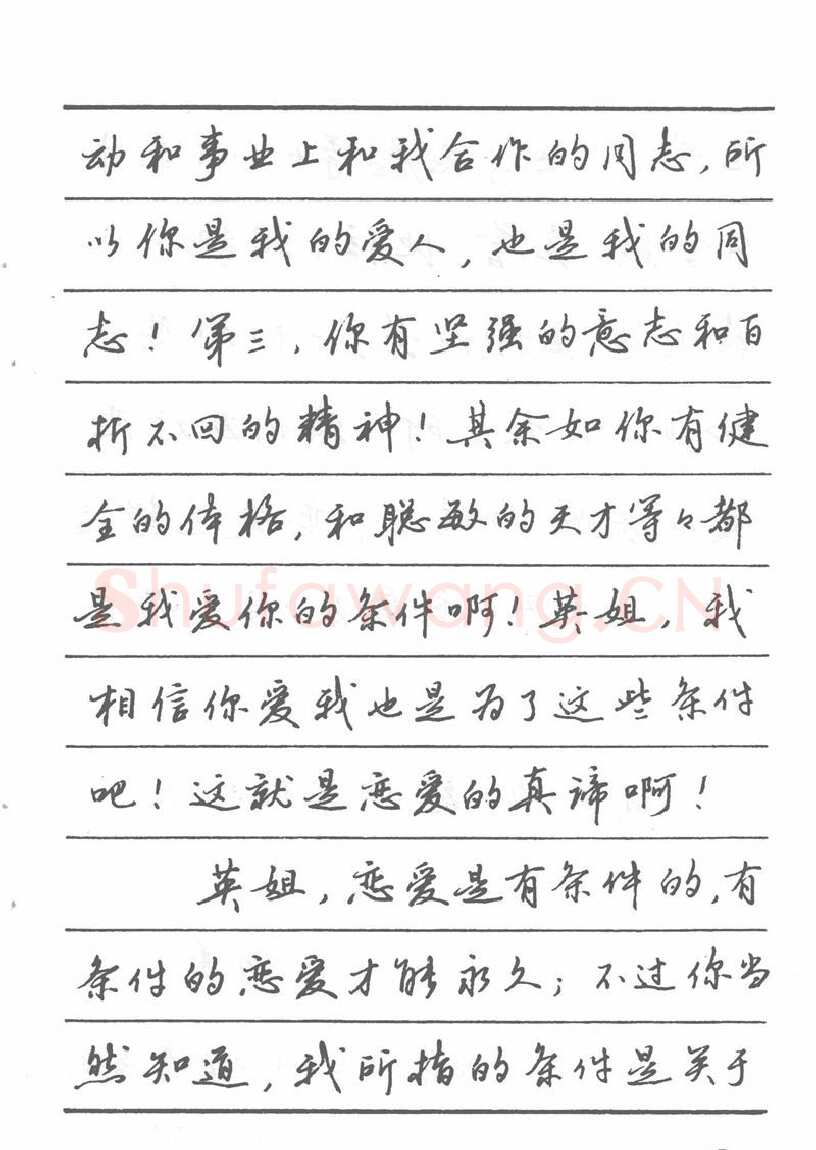 动和事业上和我合作的同志，所
以你是我的爱人，也是我的同
志！第三，你有坚强的意志和百
折不回的精神！其余如你有健
全的体格，和聪敏的天才等々都
是我爱你的条件啊！英姐，我
Shufawang.CN
相信你爱我也是为了这些条件
吧！这就是恋爱的真谛啊！
英姐，恋爱是有条件的，有
条件的恋爱才能永久；不过你当
然知道，我所指的条件是关于